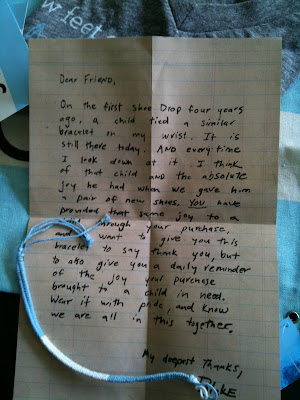 w feet
Dear Friend,
On the first Shoe Drop four years
ago, a child tied a similar
bracelet on my wrist. It is
still there today. And everytime
I look down at it I think
of that child and the absolute
joy he had when we gave him
a pair of new shoes. You have
provided that same joy to a
through your purchase,
and want to give you this
bracelet to say thank you, but
to also give you a daily reminder
of the joy your purchase
brought to a child in need.
Wear it with pride, and know
we are all in this together.
My deepest Thanks,